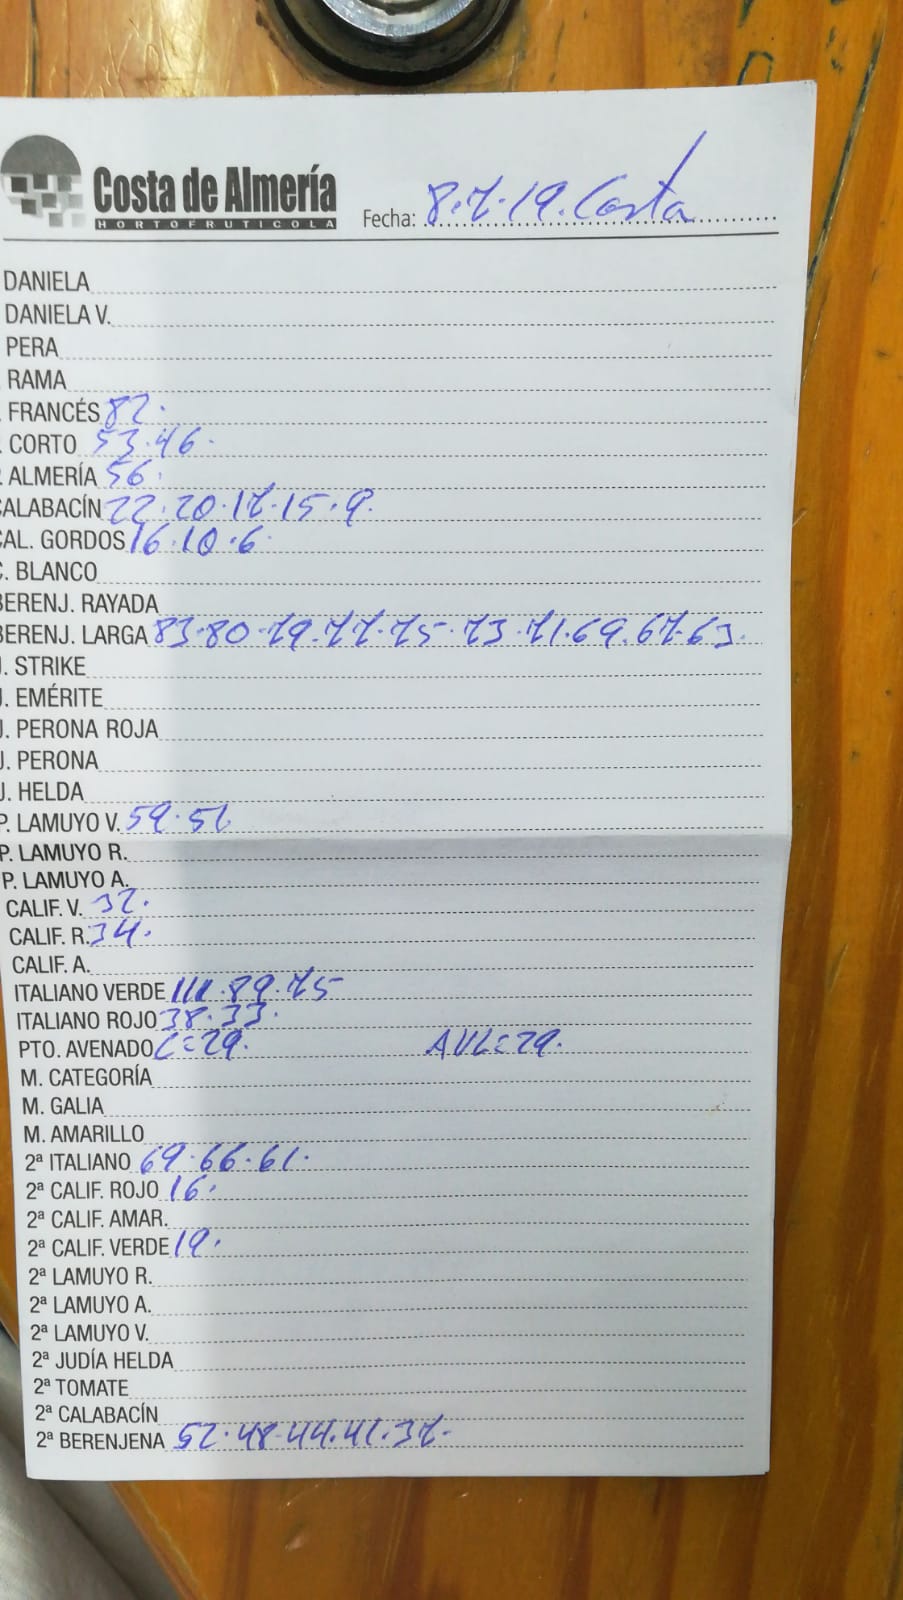 Costa de Almería
HORTOFRUTICOLA
Fecha: 8.7.19. Costa
DANIELA
DANIELA V.
PERA
RAMA
FRANCÉS 82.
CORTO 53.46.
ALMERÍA 56.
CALABACÍN 22.20.17.15.9.
CAL. GORDOS 16.10.6.
C. BLANCO
BERENJ. RAYADA
BERENJ. LARGA 83.80.79.77.75.73.71.69.67.63.
J. STRIKE
J. EMÉRITE
J. PERONA ROJA
J. PERONA
J. HELDA
P. LAMUYO V. 59.51
P. LAMUYO R.
P. LAMUYO A.
CALIF. V. 32.
CALIF. R. 34.
CALIF. A.
ITALIANO VERDE 111.89.75
ITALIANO ROJO 38.33.
PTO. AVENADO C=29. AVL=29.
M. CATEGORÍA
M. GALIA
M. AMARILLO
2ª ITALIANO 69.66.61.
2ª CALIF. ROJO 16.
2ª CALIF. AMAR.
2ª CALIF. VERDE 19.
2ª LAMUYO R.
2ª LAMUYO A.
2ª LAMUYO V.
2ª JUDÍA HELDA
2ª TOMATE
2ª CALABACÍN
2ª BERENJENA 52.48.44.41.37.